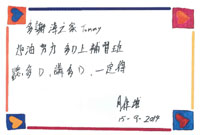 多謝海之家 Tommy
加油 努力 多D上補習班
讀多D, 講多D, 一定得
15-9-2019